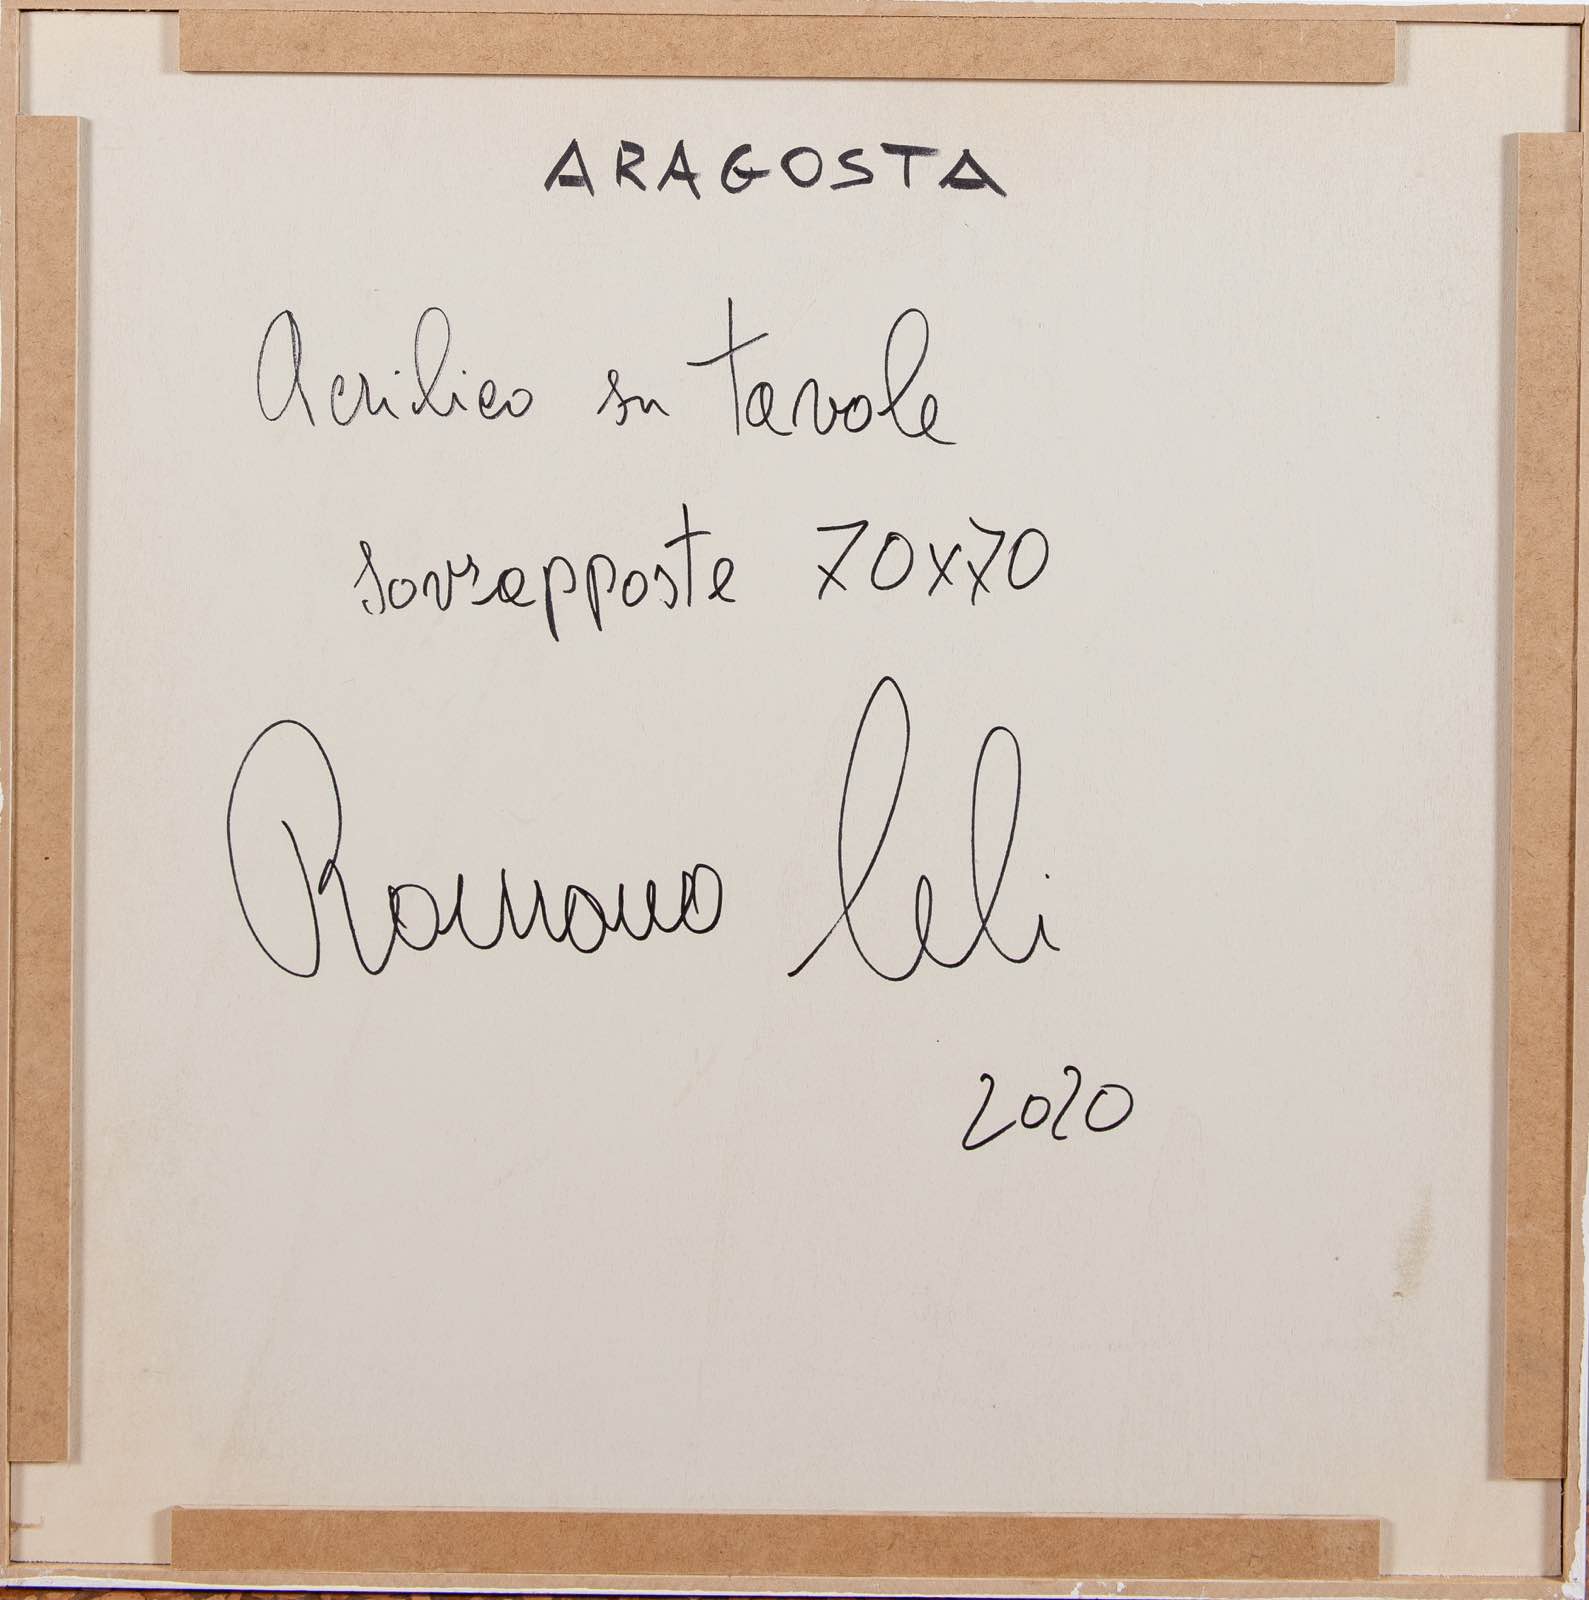 ARAGOSTA
Acrilico su tavole
sovrapposte 70x70
Romano Leli
2020